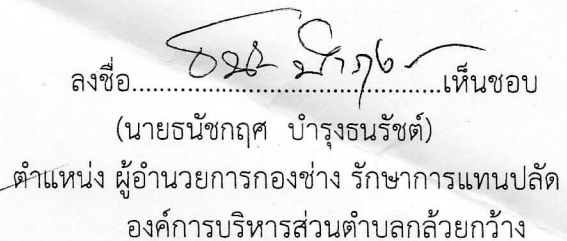 ลงชื่อ..........................................เห็นชอบ
(นายธนัชกฤศ บำรุงธนรัชต์)
ตำแหน่ง ผู้อำนวยการกองช่าง รักษาการแทนปลัด
องค์การบริหารส่วนตำบลกล้วยกว้าง